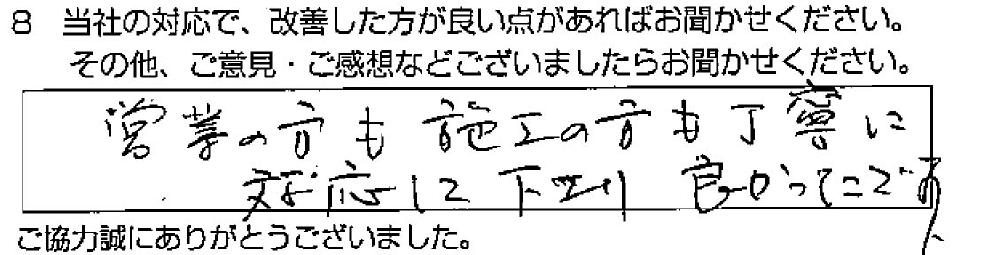 8 当社の対応で、改善した方が良い点があればお聞かせください。
その他、ご意見・ご感想などございましたらお聞かせください。
営業の方も施工の方も丁寧に
対応して下さり良かったです
ご協力誠にありがとうございました。